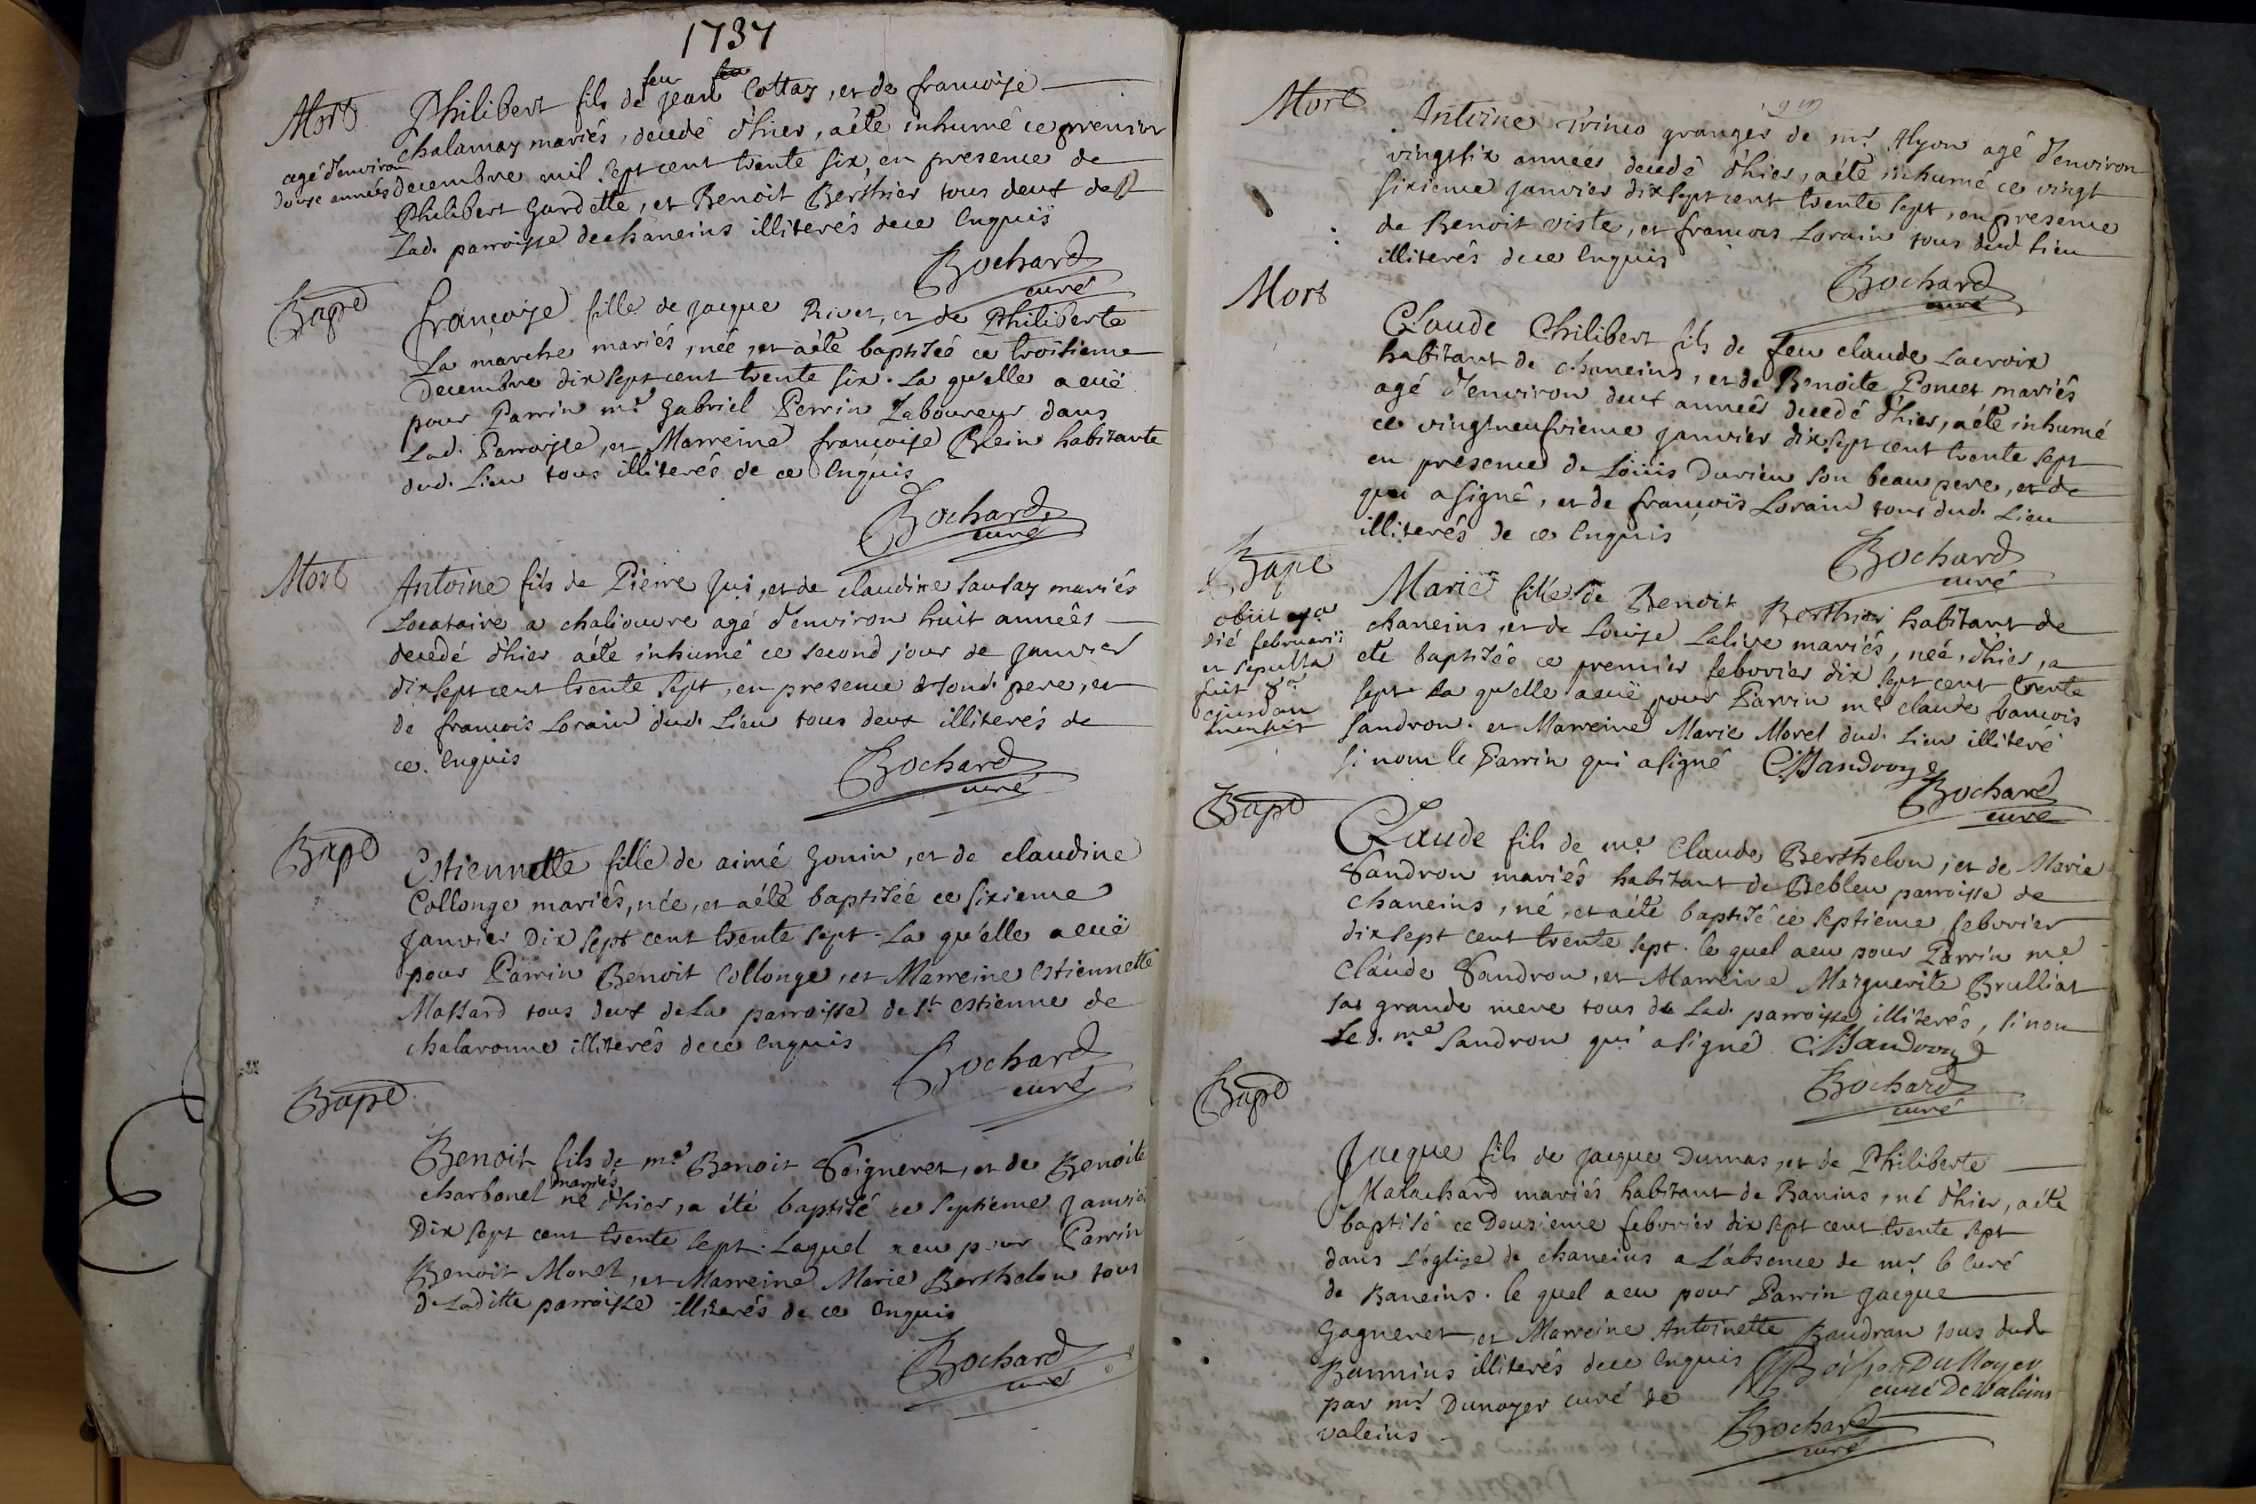 1737
Mort
agé d'environ
douse années
Philibert fils de feu jean Cottay, et de francoise
chalamay mariés, decedé d'hier, aété inhumé ce premier
decembre mil sept cent trente six, en presence de
Philibert Gardette, et Benoit Berthier tous deux de
Lad. parroisse dechaneins illiterés dece Enquis
Bochard
curé
Bapt
françoise fille de jacque Rivet, et de Philiberte
La marche mariés, née, et aété baptisée ce troisieme
decembre dix sept cent trente six. La qu'elle a euë
pour Parrin mr. Gabriel Perrin Laboureur dans
Lad. Parroisse, et Marreine françoise Blein habitante
dud. Lieu tous illiterés de ce Enquis
Bochard
curé
Mort
Antoine fils de Pierre Jui, et de claudine sausay mariés
Locataire a chaliouvre agé d'environ huit années
decedé d'hier aété inhumé ce second jour de janvier
dix sept cent trente sept, en presence de sond. pere, et
de francois Lorain dud. Lieu tous deux illiterés de
ce Enquis
Bochard
curé
Bapt
Estiennette fille de aimé Gonin, et de claudine
Collonge mariés, née, et aété baptisée ce sixieme
janvier Dix sept cent trente sept. La qu'elle a euë
pour Parrin Benoit Collonge, et Marreine Estiennette
Massard tous deux de La parroisse de st. Estienne de
chalaronne illiterés dece Enquis
Bochard
curé
Bapt
Benoit fils de mr. Benoit Seigneret, et de Benoite
charbonel mariés né d'hier, a été baptisé ce septieme janvier
Dix sept cent trente sept. Laquel a eu pour Parrin
Benoit Morel, et Marreine Marie Berthelon tous
de Laditte parroisse illiterés de ce Enquis
Bochard
curé
Mort
Antoine granger de mr. Alyon agé d'environ
vingt six années decedé d'hier, aété inhumé ce vingt
sixieme janvier dix sept cent trente sept, en presence
de Benoit viste, et francois Lorain tous dud. Lieu
illiterés dece Enquis
Bochard
curé
Mort
Claude Philibert fils de feu claude Lacroix
habitant de chaneins, et de Benoite Poncet mariés
agé d'environ deux années decedé d'hier, aété inhumé
ce vingtneufvieme janvier dix sept cent trente sept
en presence de Loüis Durieu son beau pere, et de
qui a signé, et de françois Lorain tous dud. Lieu
illiterés de ce Enquis
Bochard
curé
Bapt
obiit 7a
die februarii
et sepulta
fuit 8a
ejusdam
mensis
Marie fille de Benoit Berthier habitant de
chaneins, et de Louise Lalive mariés, née d'hier, a
eté baptisée ce premier febvrier dix sept cent trente
sept La qu'elle a euë pour Parrin mr. claude francois
Sandron. et Marreine Marie Morel dud. Lieu illiteré
si nom le Parrin qui a signé CfSandron
Bochard
curé
Bapt
Claude fils de mr. Claude Berthelon, et de Marie
Sandron mariés habitant de Bebleu parroisse de
chaneins, né, et aété baptisé ce septieme febvrier
dix sept cent trente sept. le quel a eu pour Parrin mr.
Claude Sandron, et Marreine Marguerite Brulliat
sas grande mere tous de Lad. parroisse illiterés, si non
Led. mr. Sandron qui a signé CfSandron
Bochard
curé
Bapt
Jacque fils de jacque Dumas, et de Philiberte
Malachard mariés habitant de Banins, né d'hier, aété
baptisé ce Deusieme febvrier dix sept cent trente sept
dans L'église de chaneins a L'absence de mr. le Curé
de Baneins. le quel a eu pour Parrin Jacque
Gagneret, et Marreine Antoinette Baudran tous dud.
Bannins illiterés dece Enquis
par mr. Dunoyer curé de
valeins.
DuNoyer
curé De Valeins
Bochard
curé